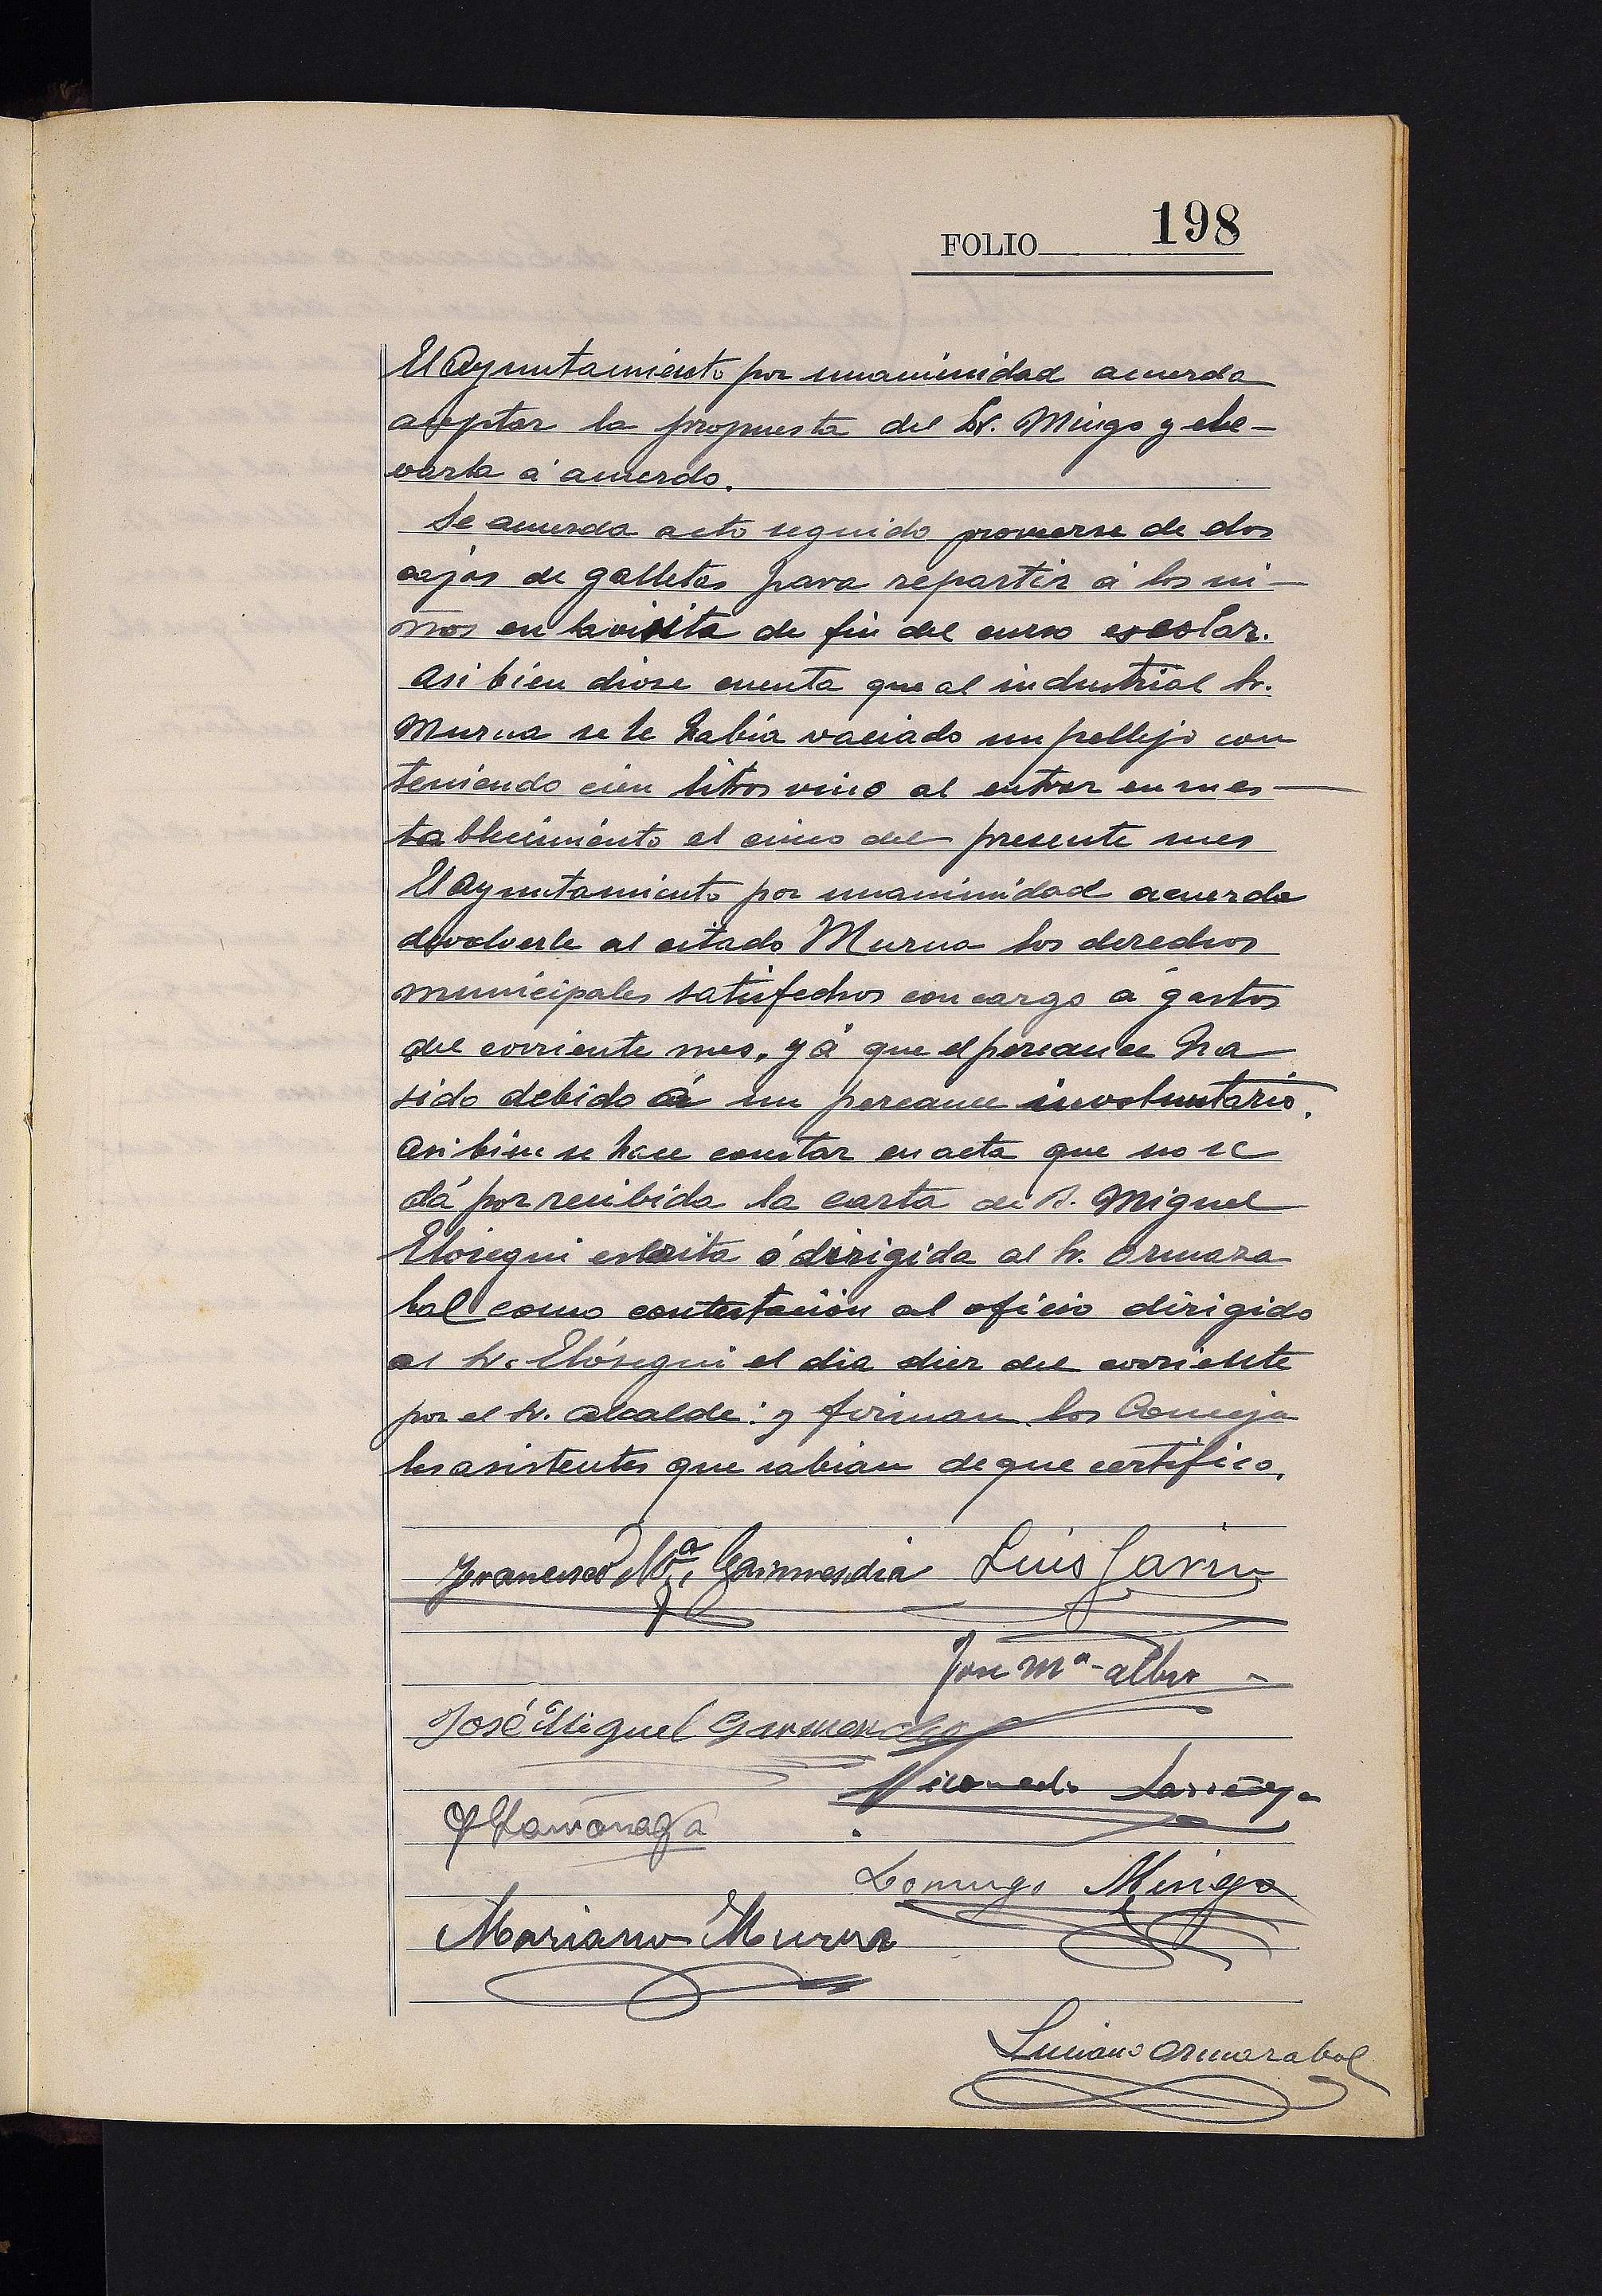 FOLIO 198
El Ayuntamiento por unanimidad acuerda
aceptar la propuesta del Sr. Mingo y ele-
varla á acuerdo.
Se acuerda acto seguido proveerse de dos
cajas de galletas para repartir á los ni-
ños en la visita de fin del curso escolar.
Asi bien diose cuenta que al industrial Sr.
Murua se le había vaciado un pellejo con
teniendo cien litros vino al entrar en su es-
tablecimiento el cinco del presente mes
El Ayuntamiento por unanimidad acuerda
devolverle al citado Murua los derechos
municipales satisfechos con cargo á gastos
del corriente mes, yá que el percance ha
sido debido á un percance involuntario.
Asi bien se hace constar en acta que no se
dá por recibida la carta de D. Miguel
Elosegui escrita ó dirigida al Sr. Ormaza
bal como contestación al oficio dirigido
al Sr. Elósegui el dia diez del corriente
por el Sr. Alcalde: y firman los Conceja
les asistentes que sabian de que certifico.
Francisco Mª. Garmendia Luis Garin
José Mª Albor
José Miguel Garmendia
Nicomedes Larrañaga
Domingo Mingo
Mariano Murua
Luciano Ormazabal